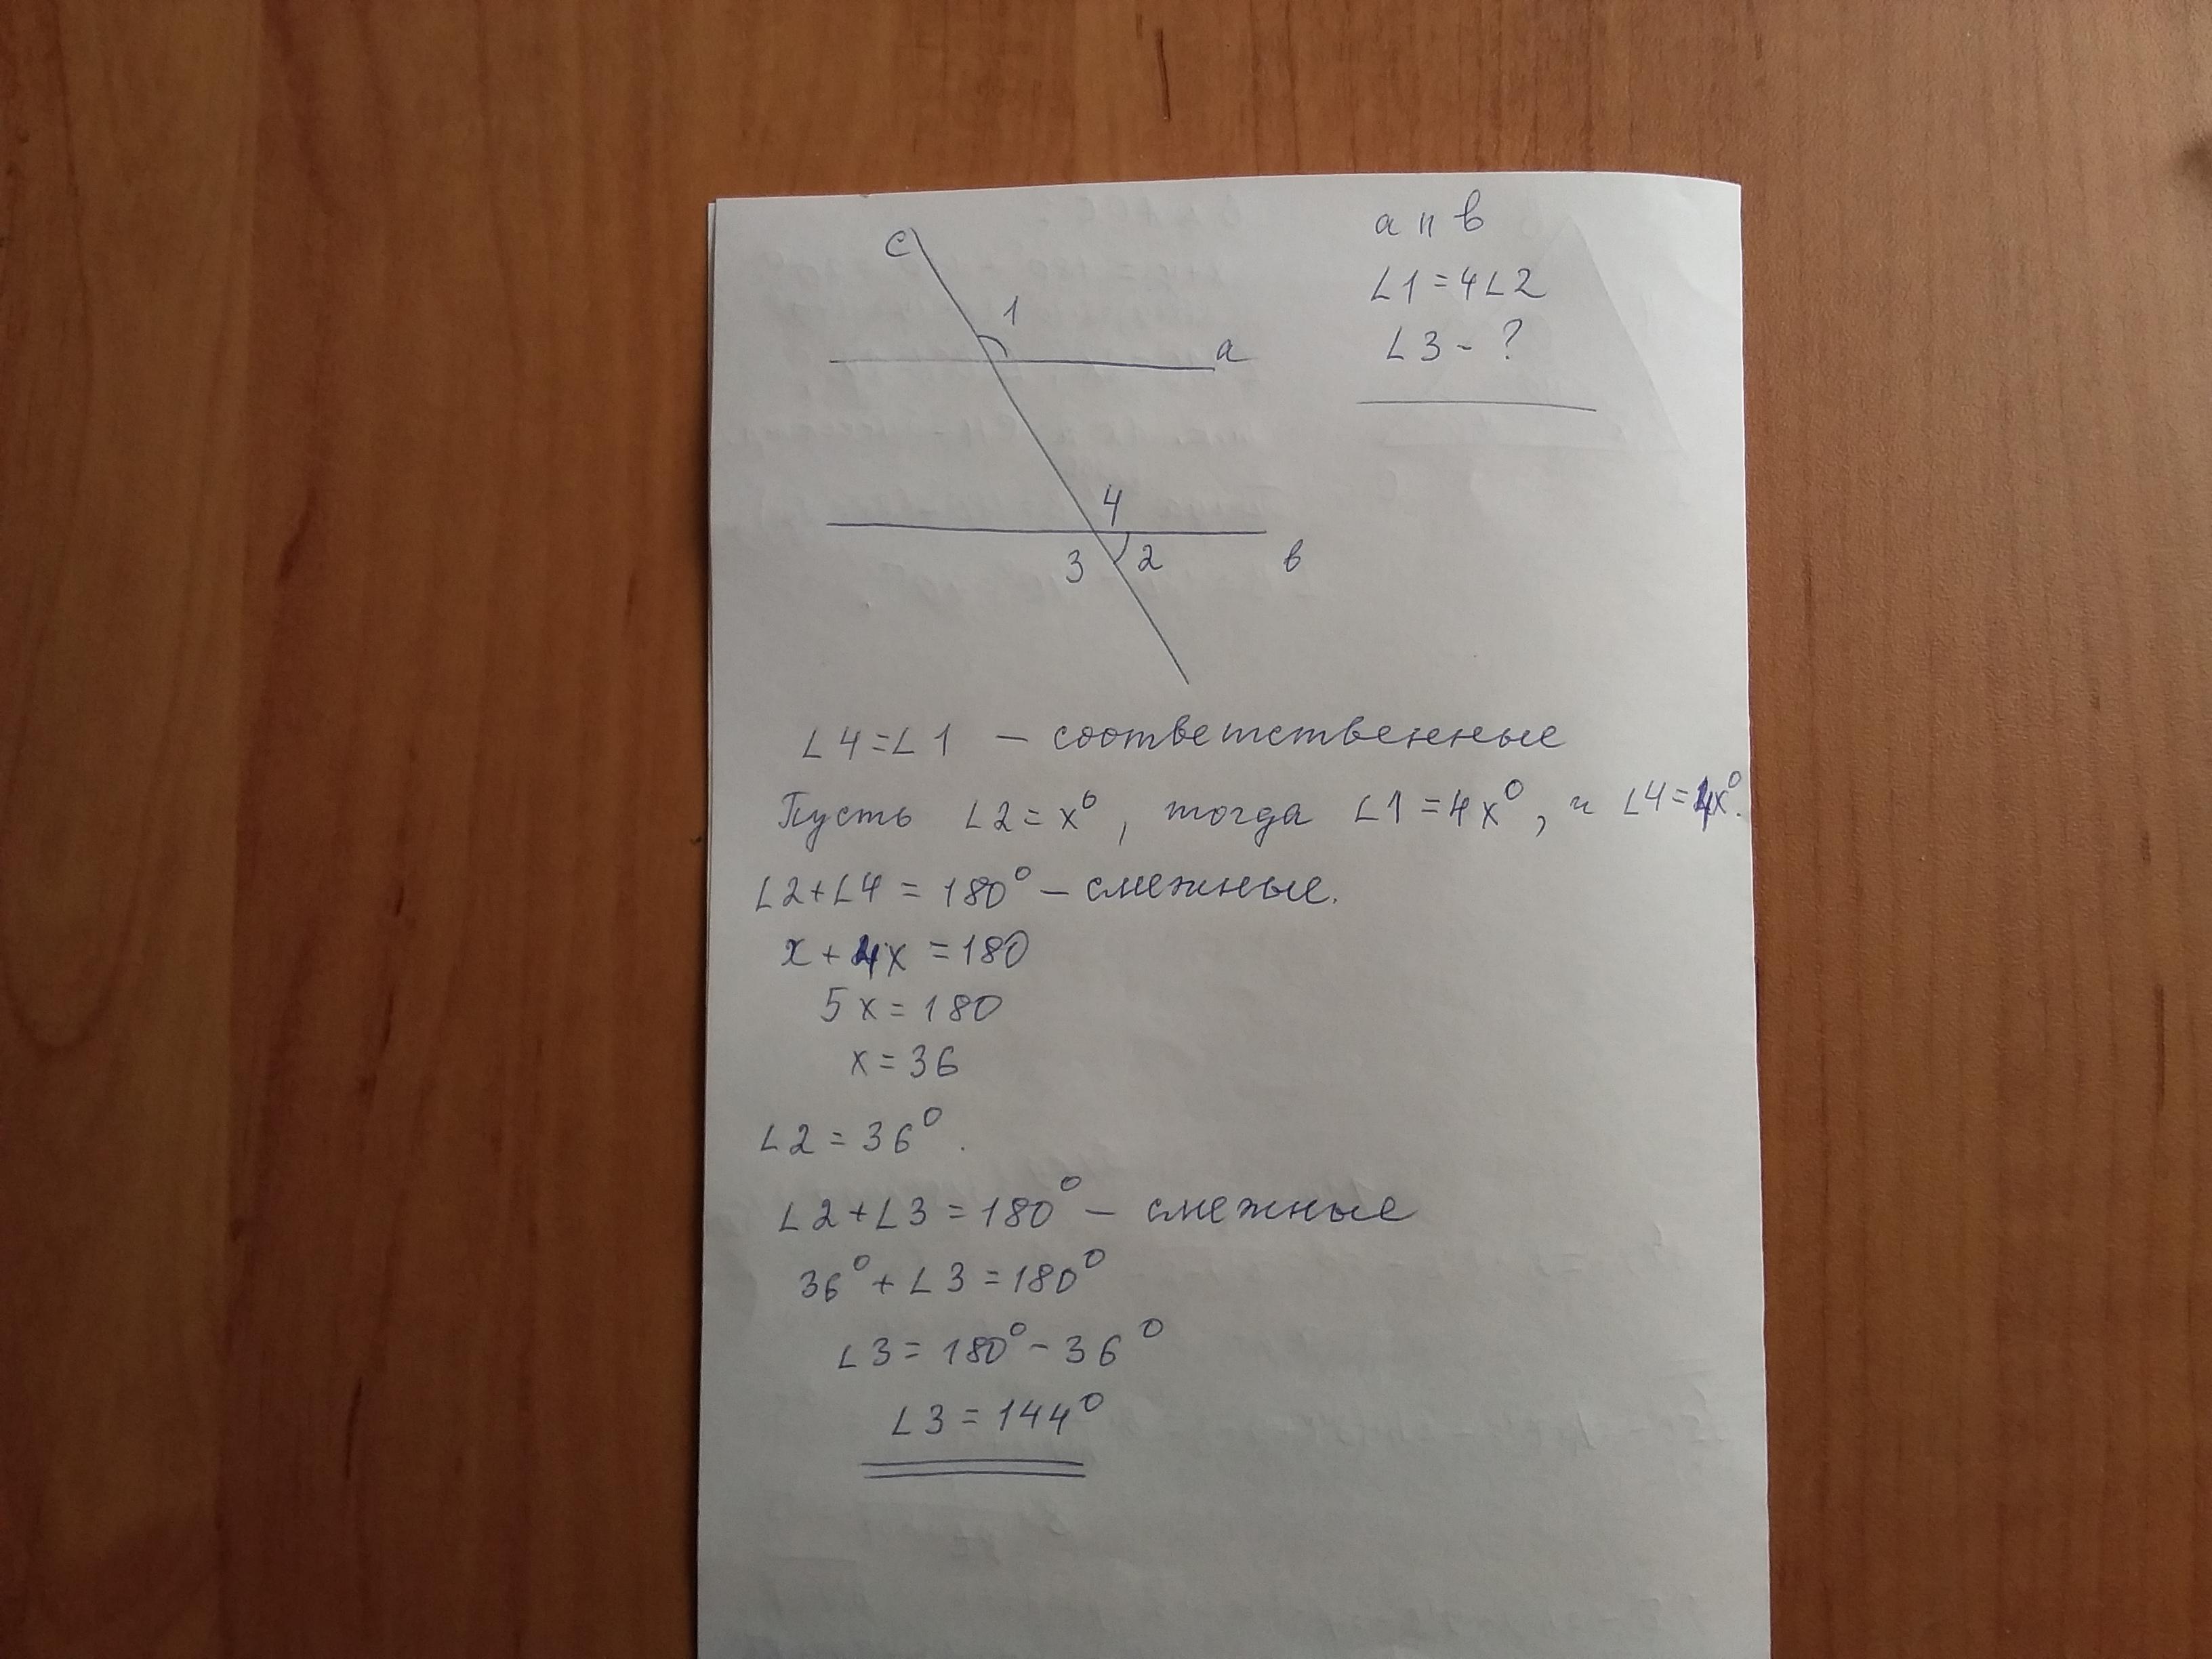 c
1
a
4
3
2
в
a || в
∠1=4∠2
∠3-?
∠4=∠1 – соответственные
Пусть ∠2=x°, тогда ∠1=4x°, и ∠4=4x°.
∠2+∠4=180° – смежные.
x+4x=180
5x=180
x=36
∠2=36°.
∠2+∠3=180° – смежные
36°+∠3=180°
∠3=180°-36°
∠3=144°